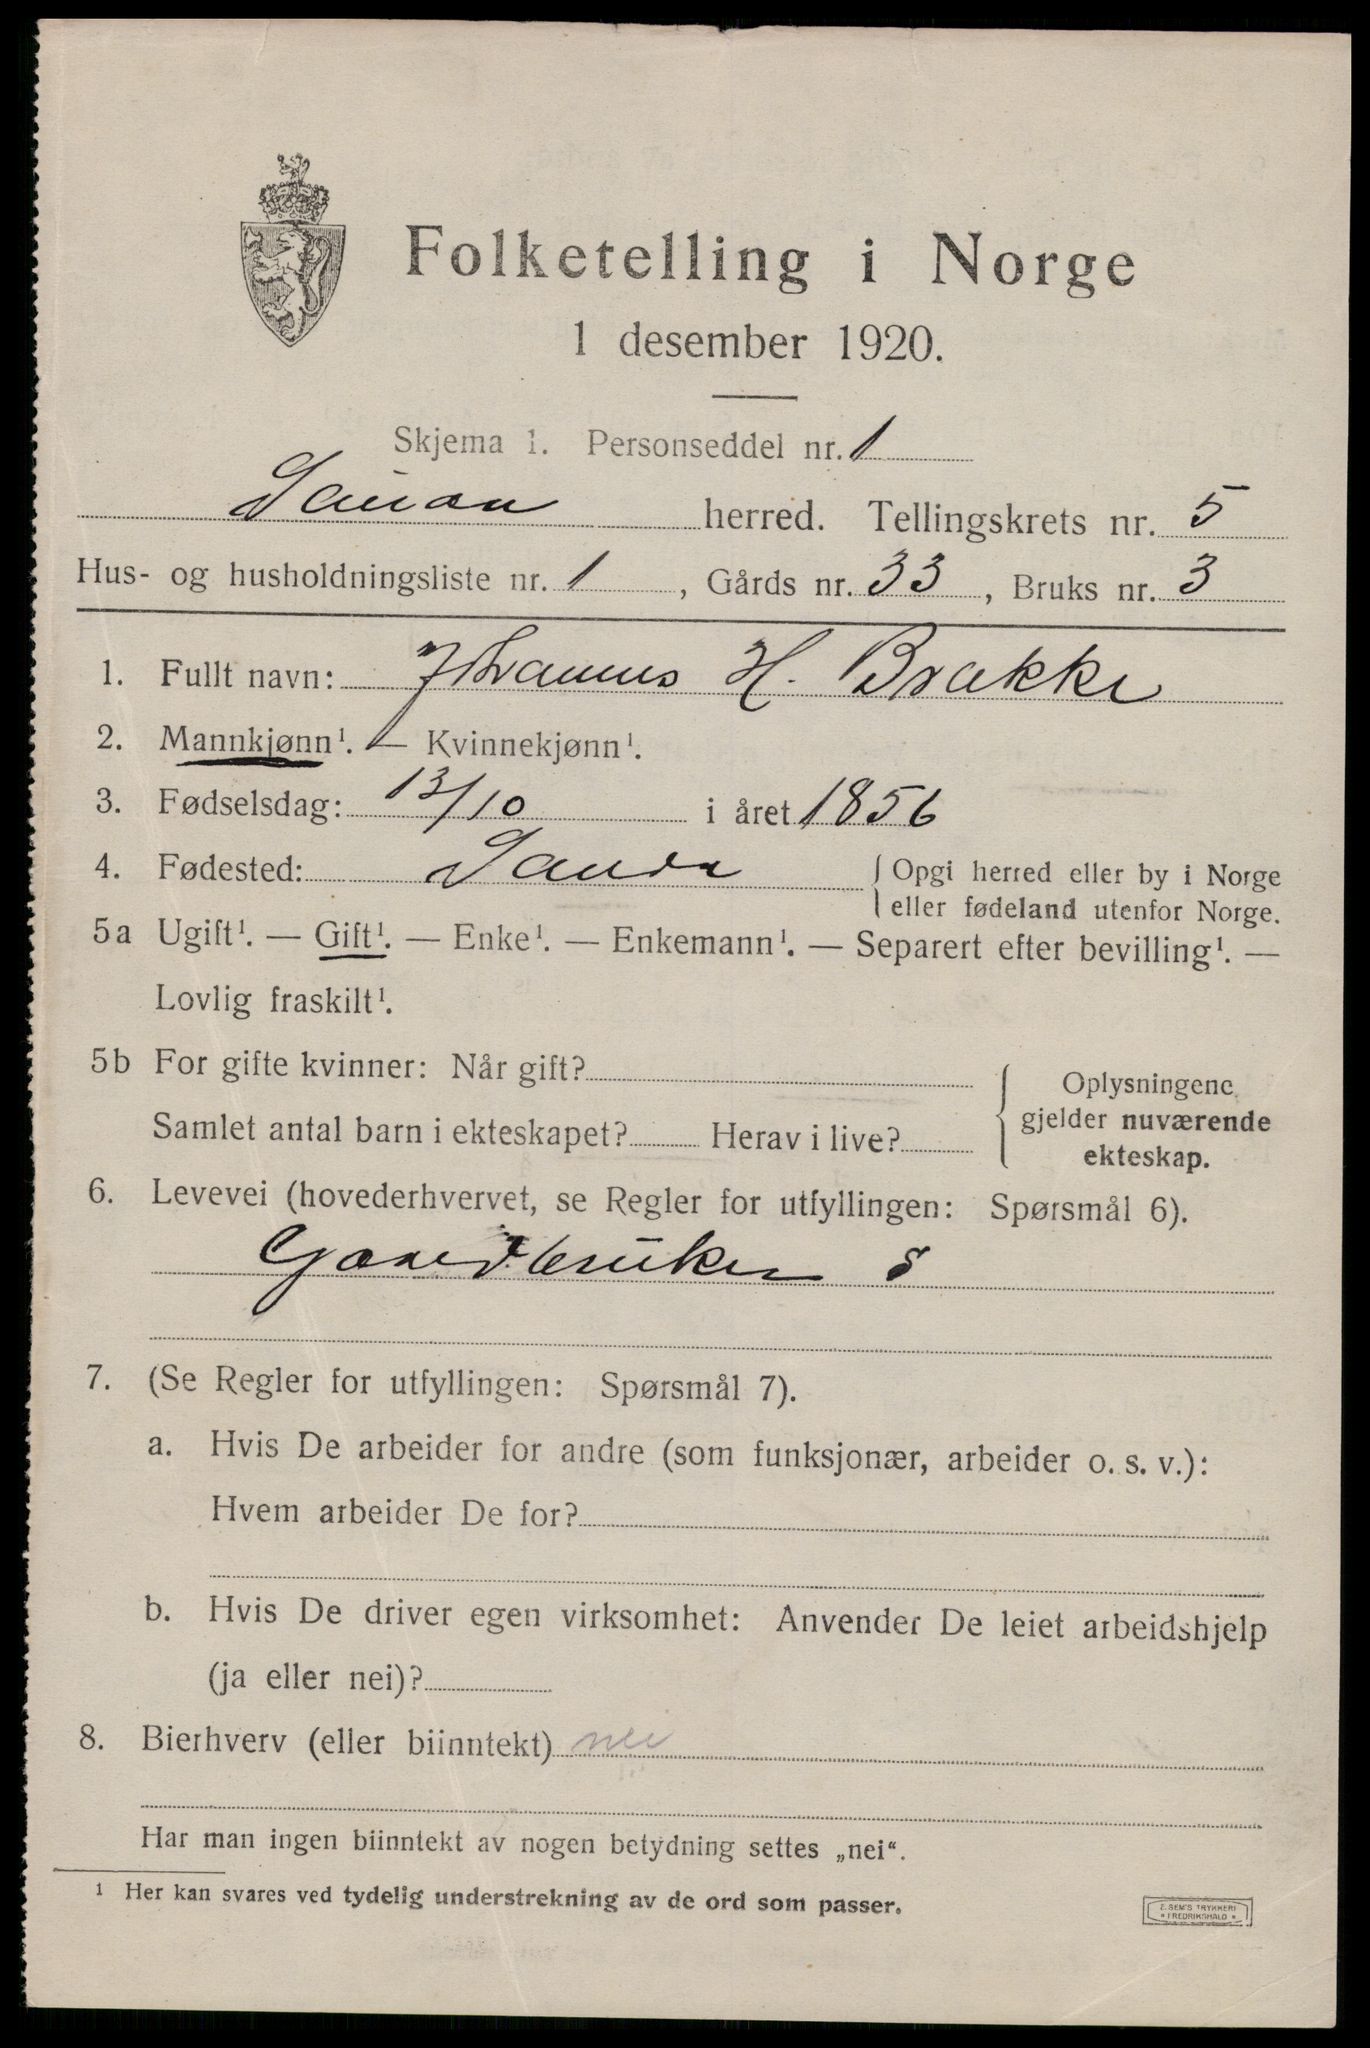 Folketelling i Norge
1 desember 1920.
Skjema 1. Personseddel nr. 1
Sauda herred. Tellingskrets nr. 5
Hus- og husholdningsliste nr. 1, Gårds nr. 33, Bruks nr. 3
1. Fullt navn: Johannes H. Brakke
2. Mannkjønn¹. — Kvinnekjønn¹.
3. Fødselsdag: 13/10 i året 1856
4. Fødested: Sauda { Opgi herred eller by i Norge
eller fødeland utenfor Norge.
5a Ugift¹. — Gift¹. — Enke¹. — Enkemann¹. — Separert efter bevilling¹. —
Lovlig fraskilt¹.
5b For gifte kvinner: Når gift?
Samlet antal barn i ekteskapet? Herav i live?
{ Oplysningene
gjelder nuværende
ekteskap.
6. Levevei (hovederhvervet, se Regler for utfyllingen: Spørsmål 6).
Gaardbruker s
7. (Se Regler for utfyllingen: Spørsmål 7).
a. Hvis De arbeider for andre (som funksjonær, arbeider o. s. v.):
Hvem arbeider De for?
b. Hvis De driver egen virksomhet: Anvender De leiet arbeidshjelp
(ja eller nei)?
8. Bierhverv (eller biinntekt) nei
Har man ingen biinntekt av nogen betydning settes „nei“.
¹ Her kan svares ved tydelig understrekning av de ord som passer.
E. SEM'S TRYKKERI
* FREDRIKSHALD *